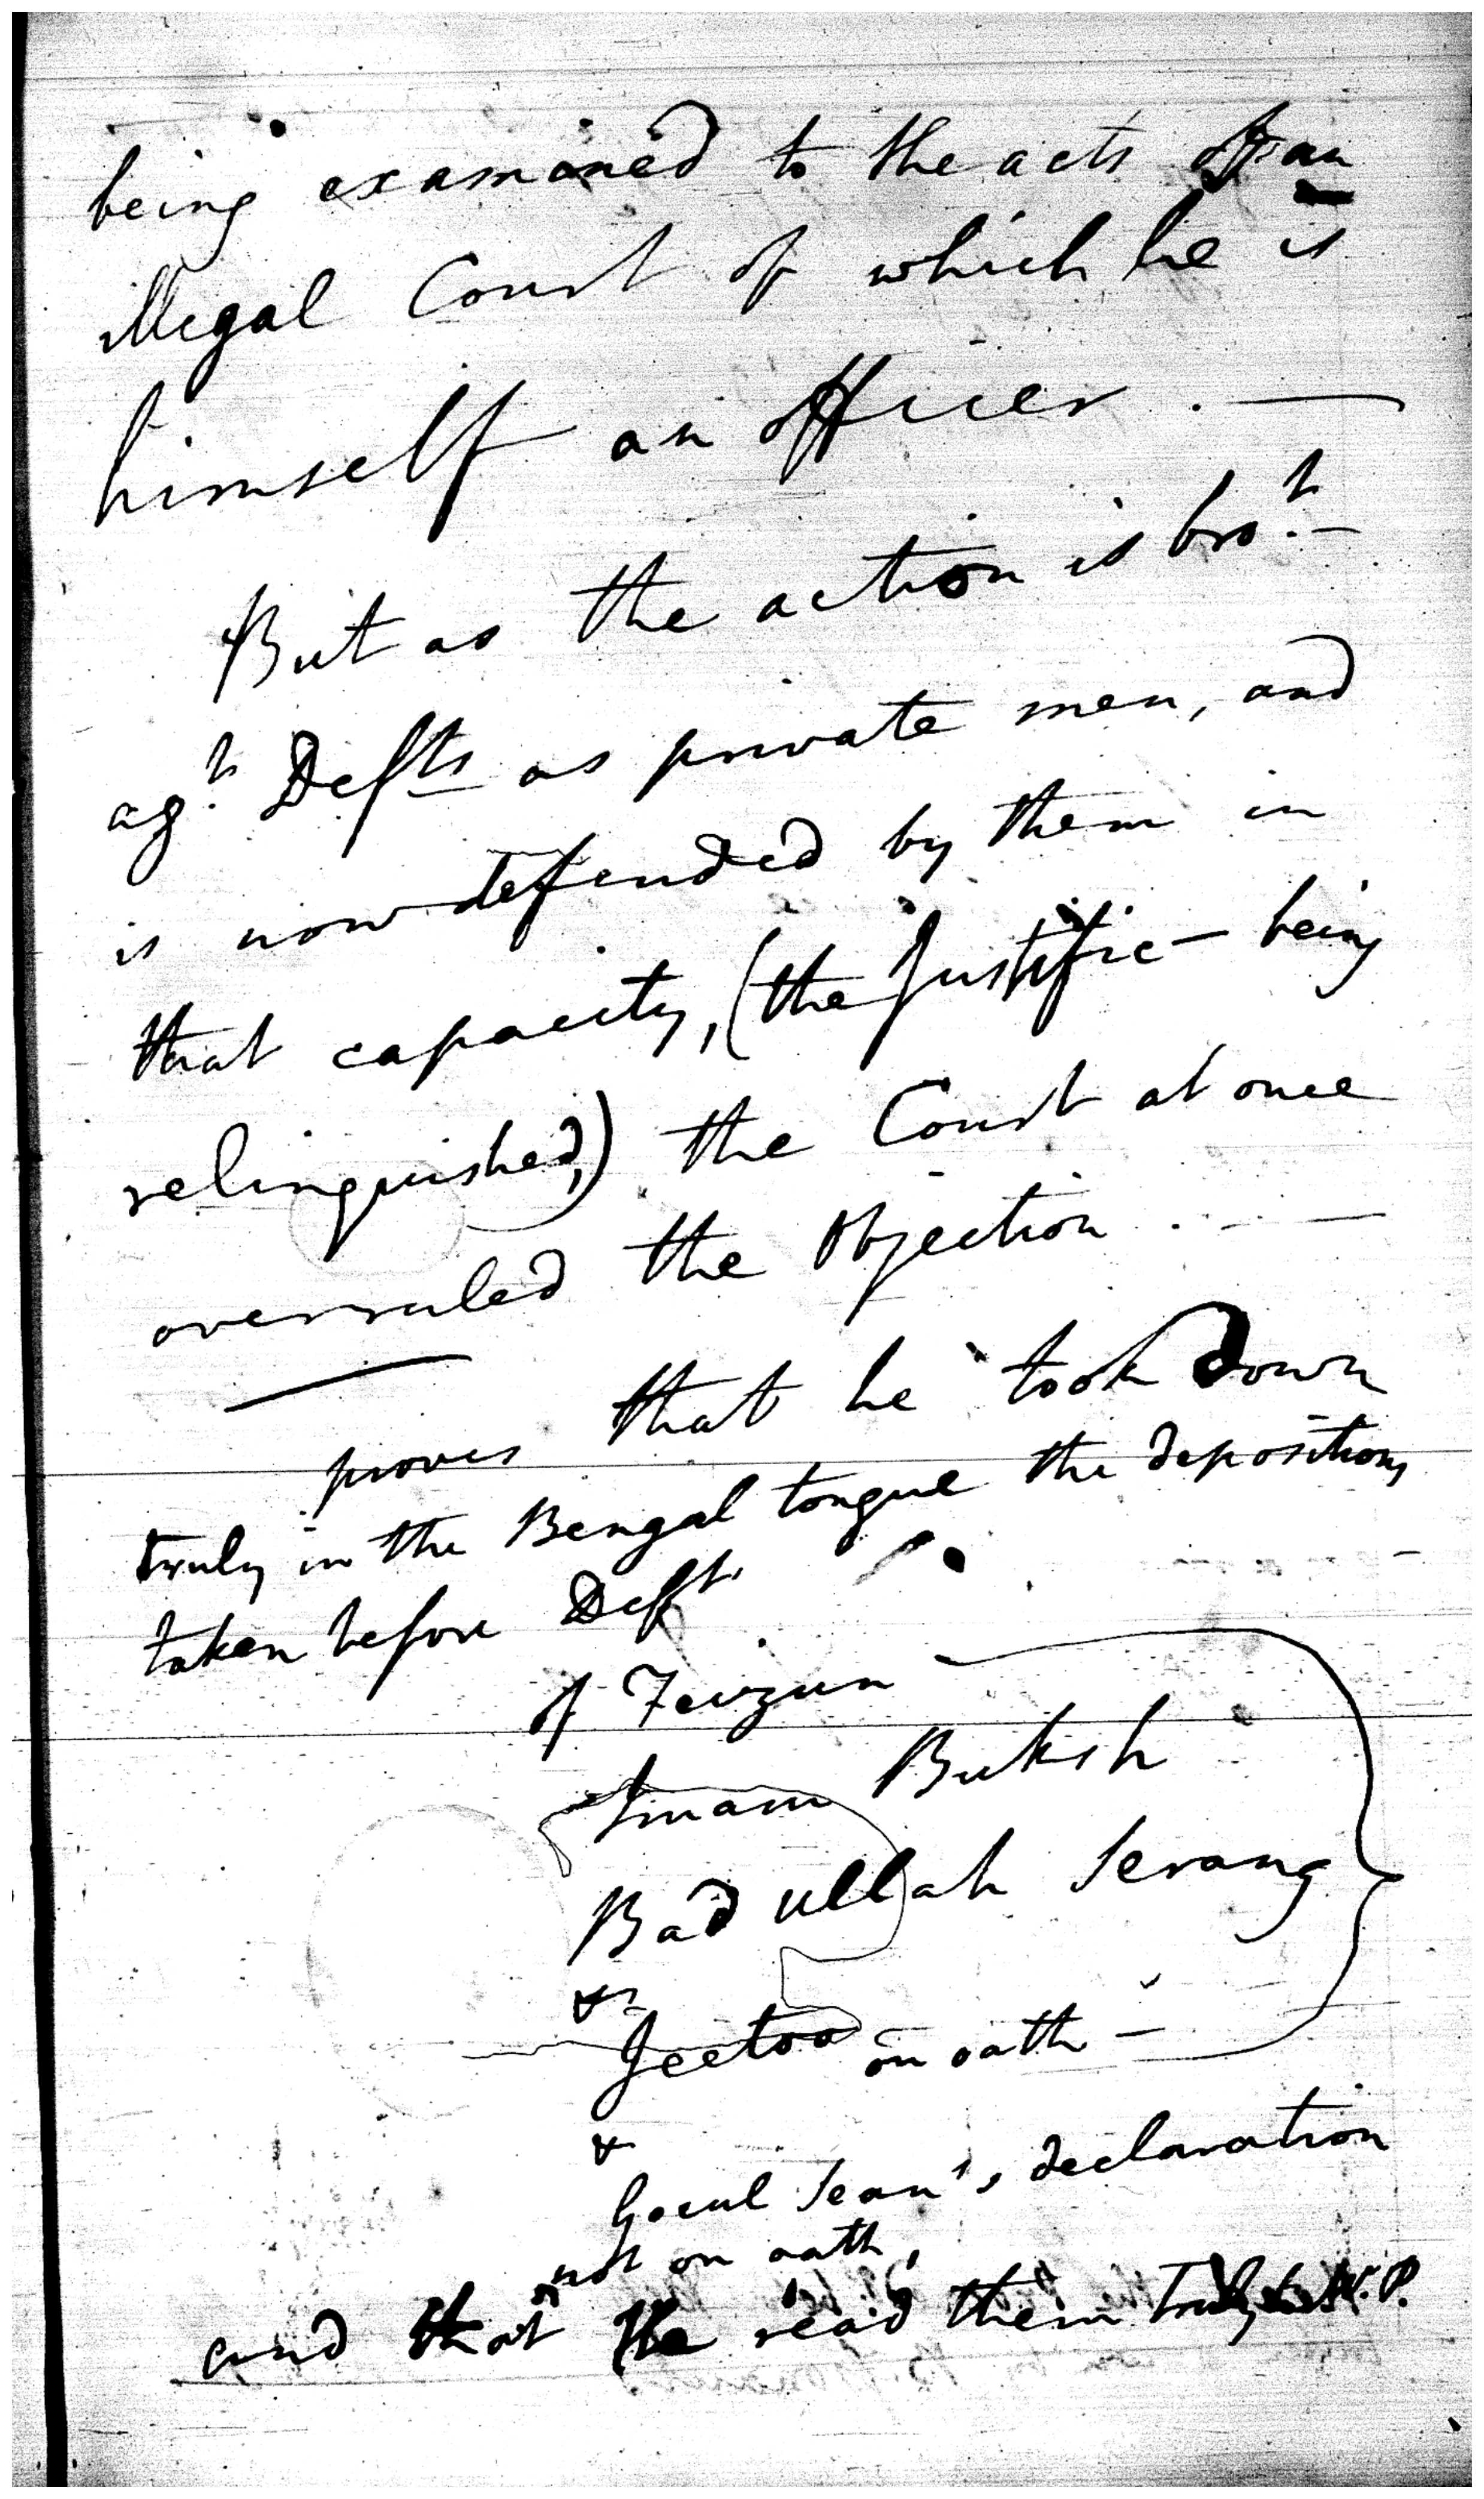 being examined to the acts of an
illegal Court of which he is
himself an officer . —
But as the action is bro.t —
ag.t Defts as private men, and
is now defended by them in
that capacity, (the Justific— being
relinquished,) the Court at once
overruled the Objection . —
proves that he took down
truly in the Bengal tongue the depositions
taken before Deft.
of Feizun
Imam Buksh
Bad ullah Serang
&
Jeetoo on oath —
&
Gocul Sean's declaration
not on oath,
and that he read them truly to